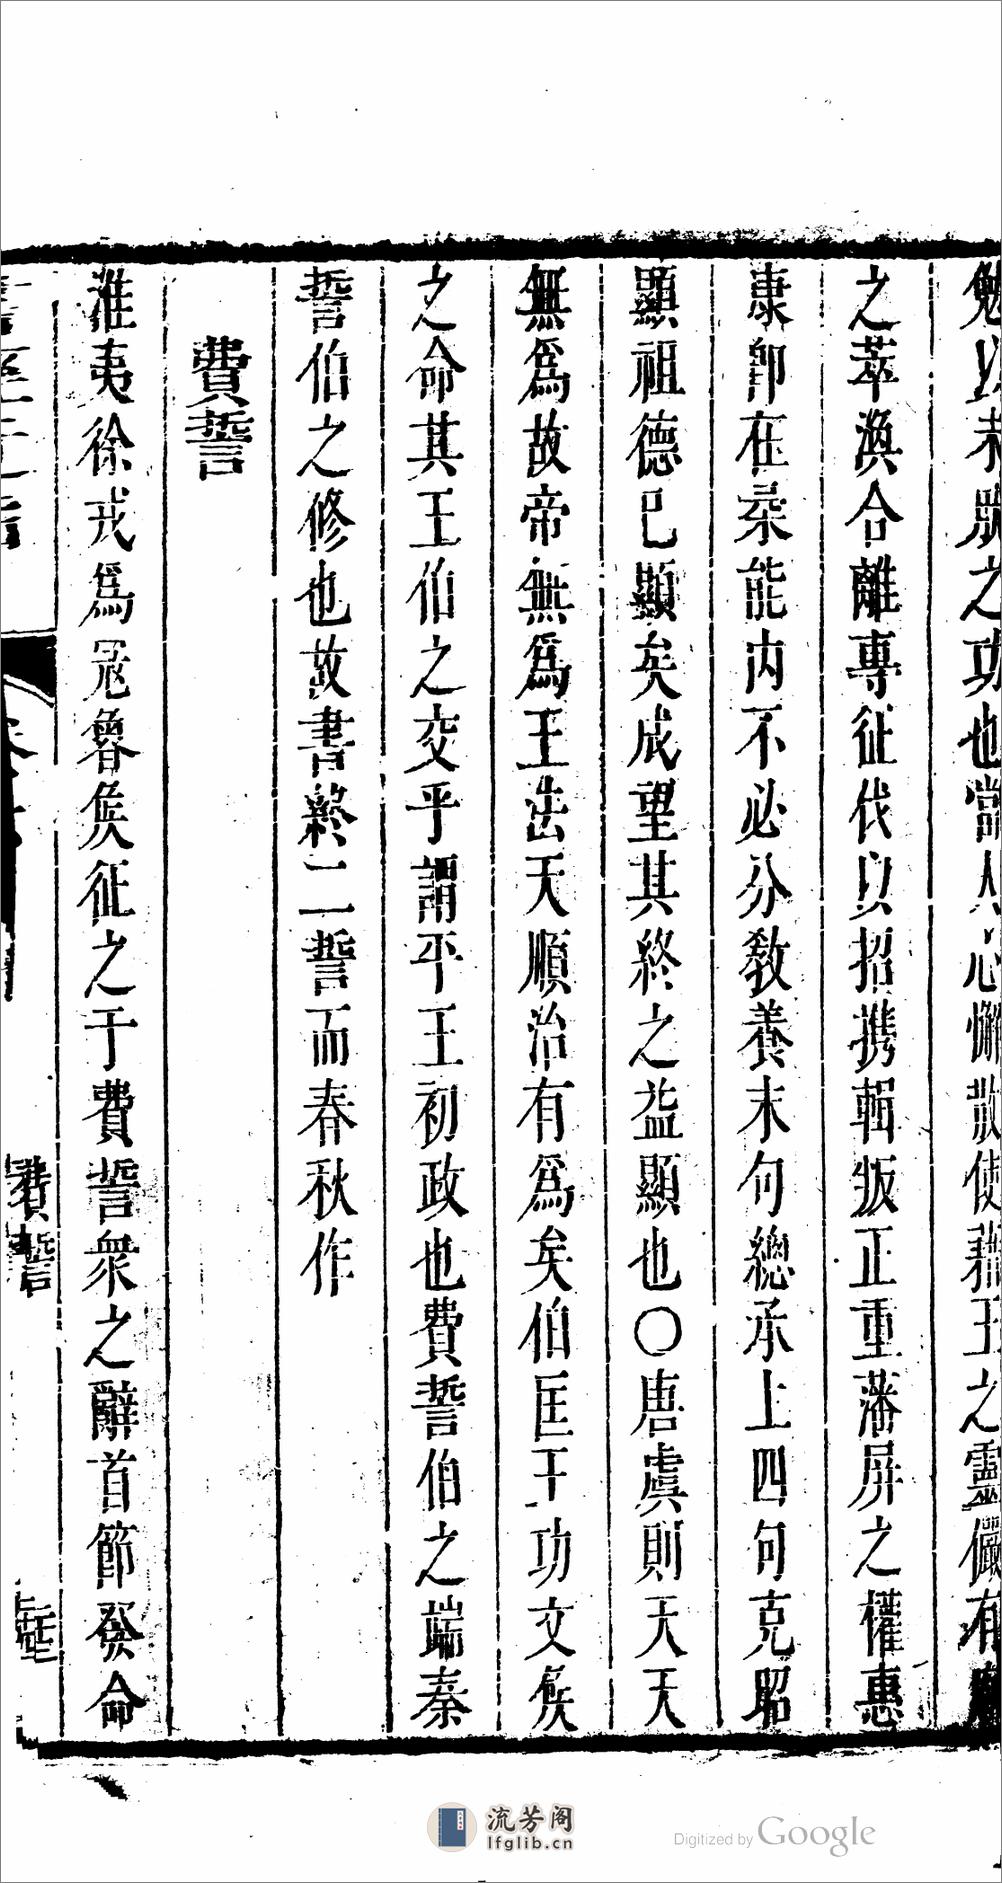 勉以未厥之功也當人心懈散使非王之靈儼有
之萃渙合離專征伐以招携輯叛正重藩屏之權惠
康卽在柔能内不必分教養末句總承上四句克昭
顯祖德已顯矣成望其終之益顯也○唐虞則天天
無爲故帝無爲王法天順治有爲矣伯匡王功文侯
之命其王伯之交乎謂平王初政也費誓伯之端秦
誓伯之修也故書終二誓而春秋作
費誓
淮夷徐戎爲冦魯侯征之于費誓衆之辭首節發命
費誓
流芳阁
lfglib.cn
Digitized by Google